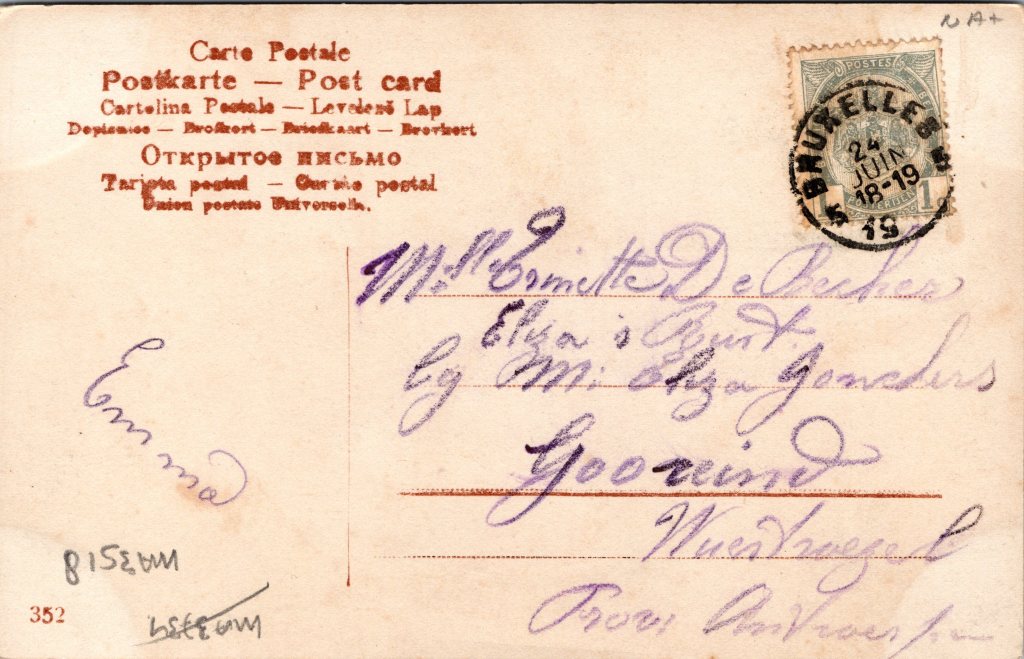 Carte Postale
Postkarte — Post card
Cartolina Postale — Levelező Lap
Dopisnice — Brefkort — Briefkaart — Brevkort
Открытое письмо
Tarjeta postal — postal
Union postale Universelle.
N A+
POSTES
1 1
BRUXELLES 5
24
JUIN
18-19
19
Mlle De Becker
Eliza
by M. Eliza
Gooreind
Wuestwezel
Prov. Antwerpen
Emma
WA3518
WA3734
352